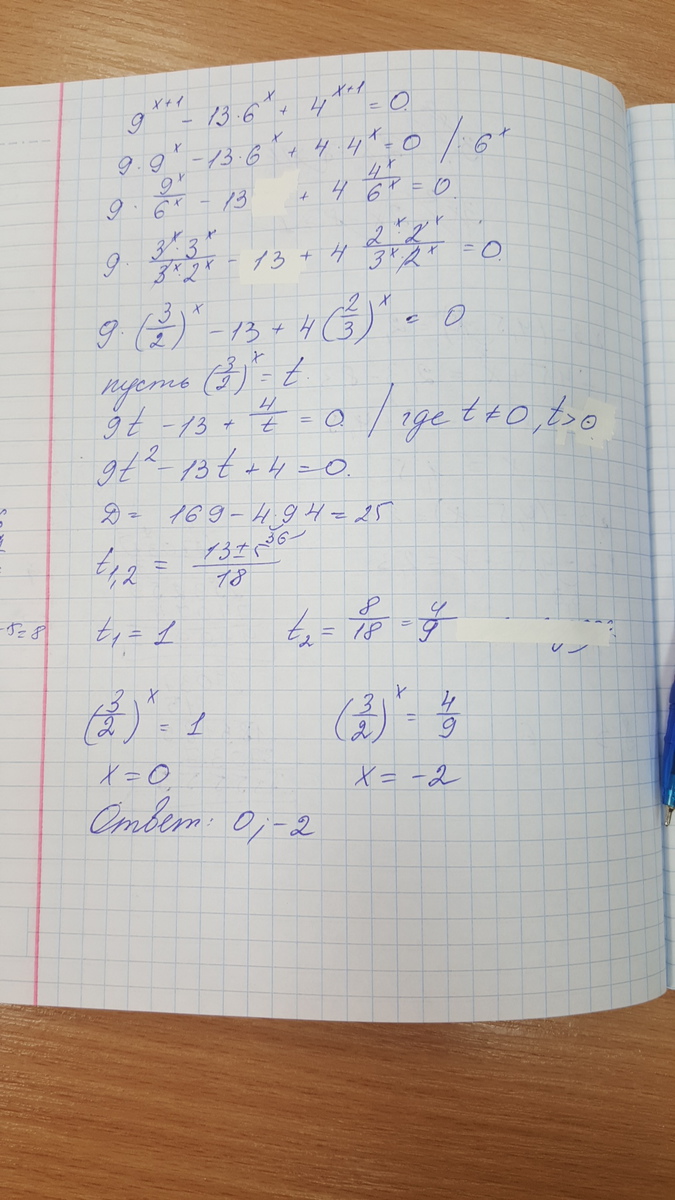 9^{x+1} - 13·6^x + 4^{x+1} = 0
9·9^x - 13·6^x + 4·4^x = 0 / : 6^x
9· 9^x/6^x - 13 + 4 4^x/6^x = 0.
9· 3^x·3^x/3^x·2^x - 13 + 4 2^x·2^x/3^x·2^x = 0.
9·(3/2)^x - 13 + 4(2/3)^x = 0
пусть (3/2)^x = t.
9t - 13 + 4/t = 0. / где t ≠ 0, t>0
9t^2 - 13t + 4 = 0.
D = 169 - 4·9·4 = 25
36
t_{1,2} = 13±5/18
-5=8
t_1 = 1 t_2 = 8/18 = 4/9
(3/2)^x = 1 (3/2)^x = 4/9
x = 0 x = -2
Ответ: 0; -2